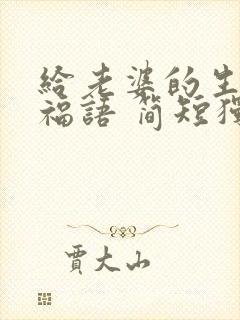 給老婆的生
福語 簡短獨
賈大山